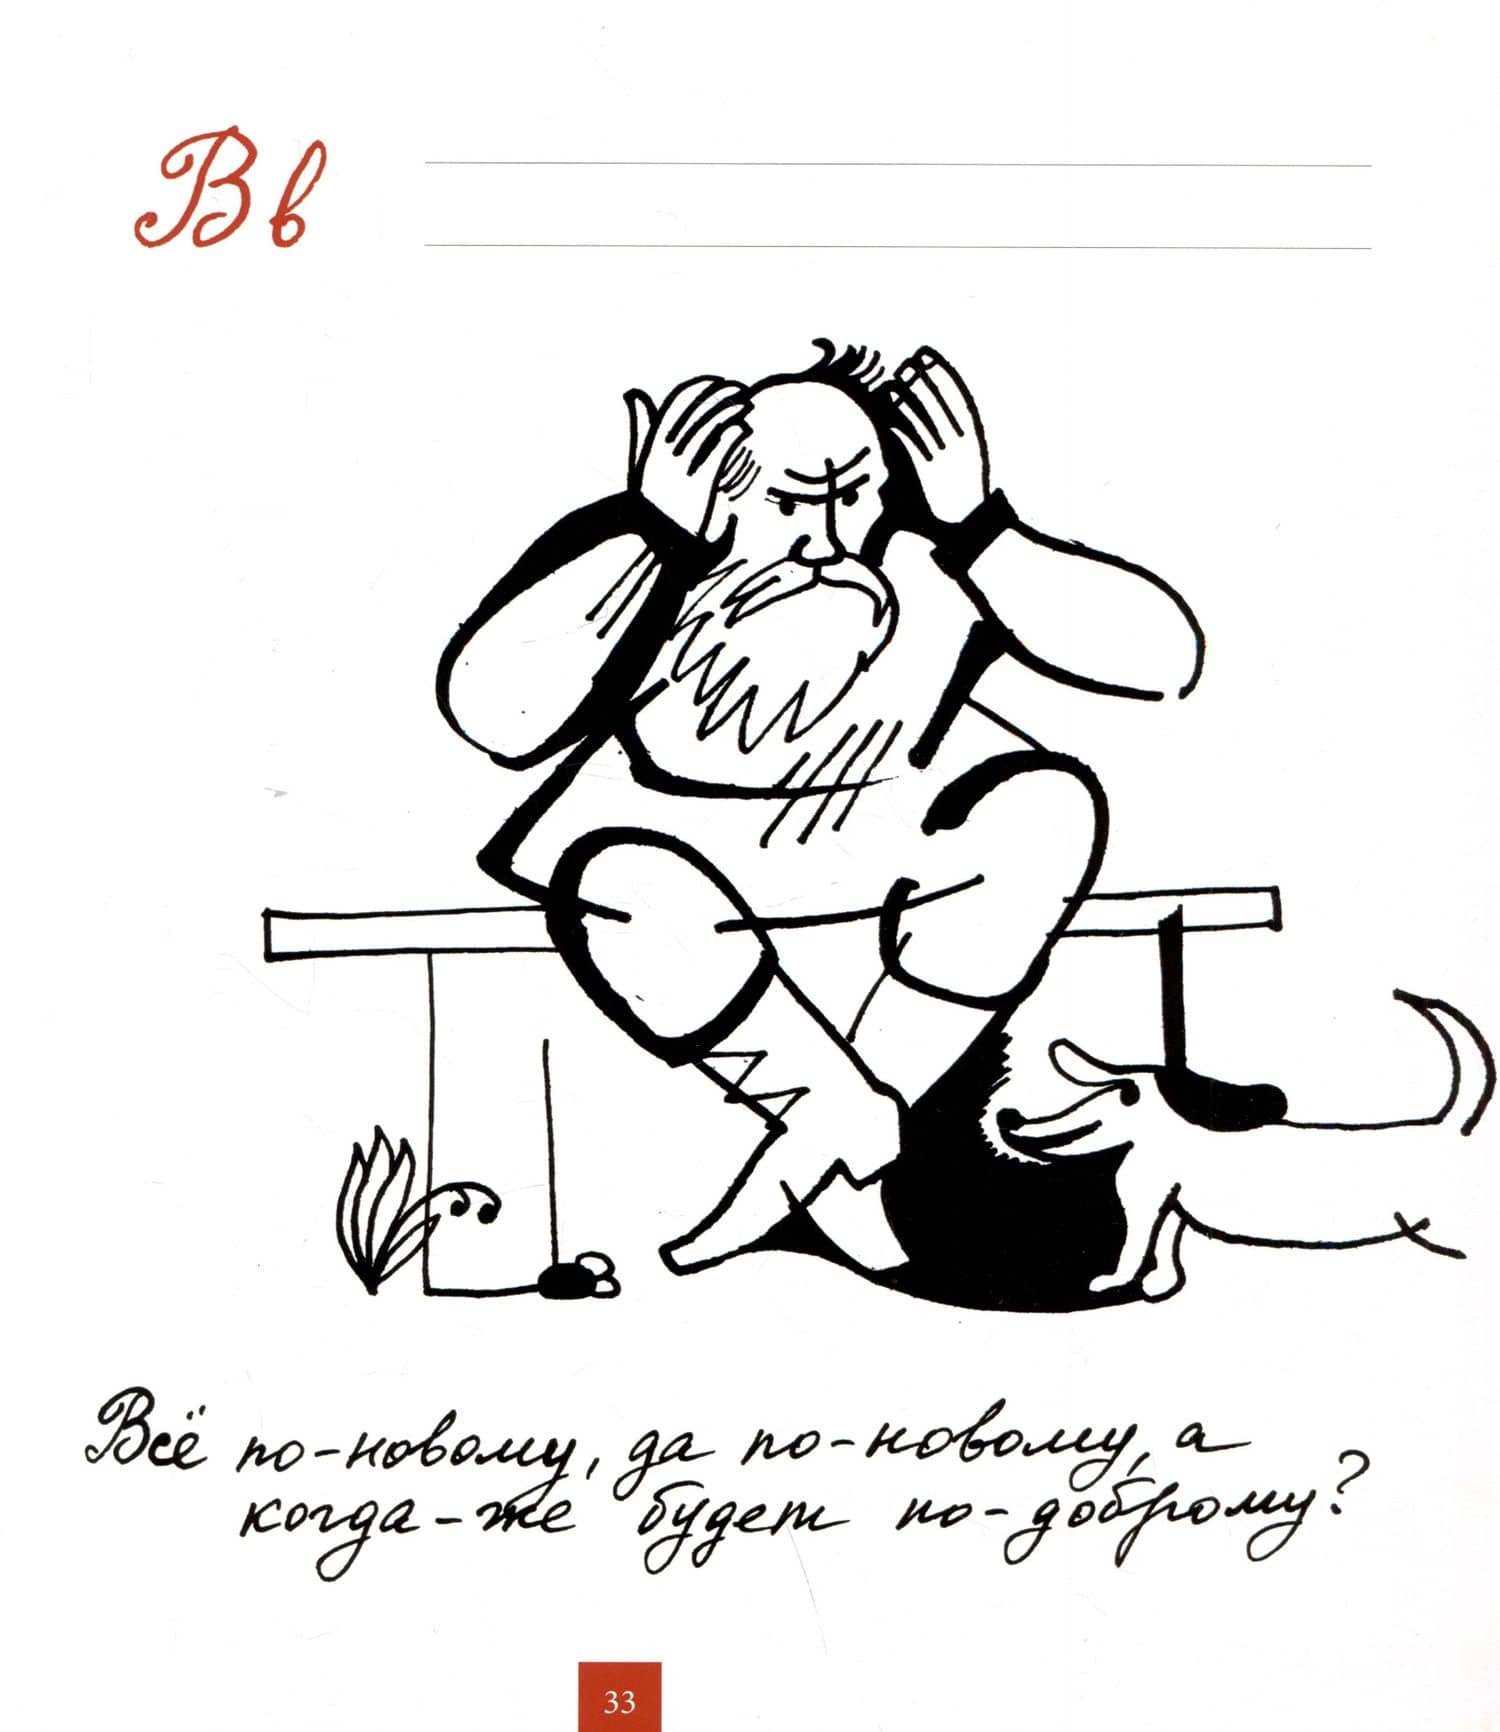 В в
Всё по-новому, да по-новому, а
когда-же будет по-доброму?
33